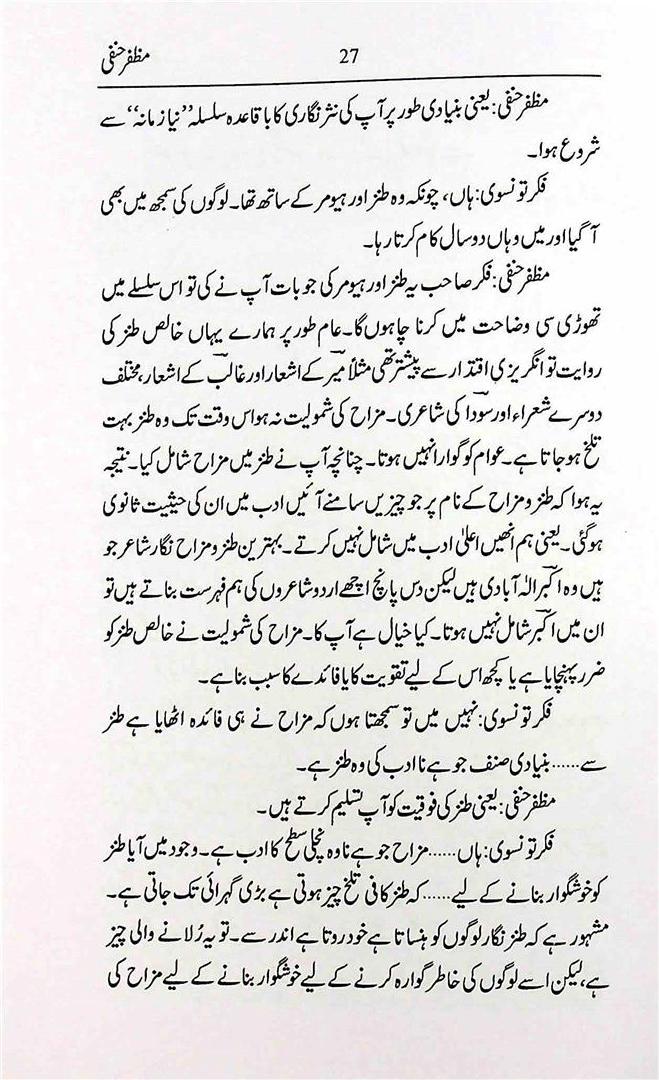 مظفر حنفی 27
مظفر حنفی: یعنی بنیادی طور پر آپ کی نثر نگاری کا باقاعدہ سلسلہ ’’نیا زمانہ‘‘ سے
شروع ہوا۔
فکر تونسوی: ہاں، چونکہ وہ طنز اور ہیومر کے ساتھ تھا۔ لوگوں کی سمجھ میں بھی
آ گیا اور میں وہاں دو سال کام کرتا رہا۔
مظفر حنفی: فکر صاحب یہ طنز اور ہیومر کی جو بات آپ نے کی تو اس سلسلے میں
تھوڑی سی وضاحت میں کرنا چاہوں گا۔ عام طور پر ہمارے یہاں خالص طنز کی
روایت تو انگریزی اقتدار سے پیشتر تھی مثلاً میرؔ کے اشعار اور غالبؔ کے اشعار، مختلف
دوسرے شعراء اور سوداؔ کی شاعری۔ مزاح کی شمولیت نہ ہو اس وقت تک وہ طنز بہت
تلخ ہو جاتا ہے۔ عوام کو گوارا نہیں ہوتا۔ چنانچہ آپ نے طنز میں مزاح شامل کیا۔ نتیجہ
یہ ہوا کہ طنز و مزاح کے نام پر جو چیزیں سامنے آئیں ادب میں ان کی حیثیت ثانوی
ہوگئی۔ یعنی ہم انھیں اعلیٰ ادب میں شامل نہیں کرتے۔ بہترین طنز و مزاح نگار شاعر جو
ہیں وہ اکبرؔ الٰہ آبادی ہیں لیکن دس پانچ اچھے اردو شاعروں کی ہم فہرست بناتے ہیں تو
ان میں اکبرؔ شامل نہیں ہوتا۔ کیا خیال ہے آپ کا۔ مزاح کی شمولیت نے خالص طنز کو
ضرر پہنچایا ہے یا کچھ اس کے لیے تقویت کا یا فائدے کا سبب بنا ہے۔
فکر تونسوی: نہیں میں تو سمجھتا ہوں کہ مزاح نے ہی فائدہ اٹھایا ہے طنز
سے...... بنیادی صنف جو ہے نا ادب کی وہ طنز ہے۔
مظفر حنفی: یعنی طنز کی فوقیت کو آپ تسلیم کرتے ہیں۔
فکر تونسوی: ہاں...... مزاح جو ہے نا وہ نچلی سطح کا ادب ہے۔ وجود میں آیا طنز
کو خوشگوار بنانے کے لیے...... کہ طنز کافی تلخ چیز ہوتی ہے بڑی گہرائی تک جاتی ہے۔
مشہور ہے کہ طنز نگار لوگوں کو ہنساتا ہے خود روتا ہے اندر سے۔ تو یہ رُلانے والی چیز
ہے، لیکن اسے لوگوں کی خاطر گوارہ کرنے کے لیے خوشگوار بنانے کے لیے مزاح کی